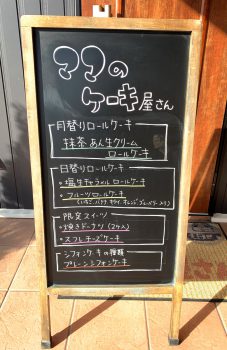 ママの
ケーキ屋さん
月替りロールケーキ
抹茶あん生クリーム
ロールケーキ
日替りロールケーキ
・塩生キャラメルロールケーキ
・フルーツロールケーキ
(いちご、バナナ、キウイ、オレンジ、ブルーベリー入り)
限定スイーツ
・焼きドーナツ(2ケ入)
・スフレチーズケーキ
シフォンケーキの種類
プレーンシフォンケーキ